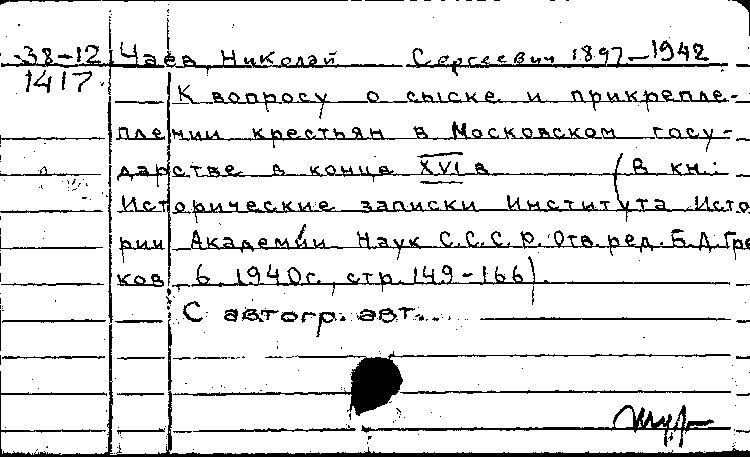 38-12 Чаев, Николай Сергеевич 1897-1942
1417. К вопросу о сыске и прикрепле-
плении крестьян в Московском госу-
дарстве в конце XVI в (В кн.:
Исторические записки Института Исто
рии Академии Наук С.С.С.Р. Отв. ред. Б.Д. Гре
ков, 6. 1940г., стр. 149-166).
С автогр. авт...